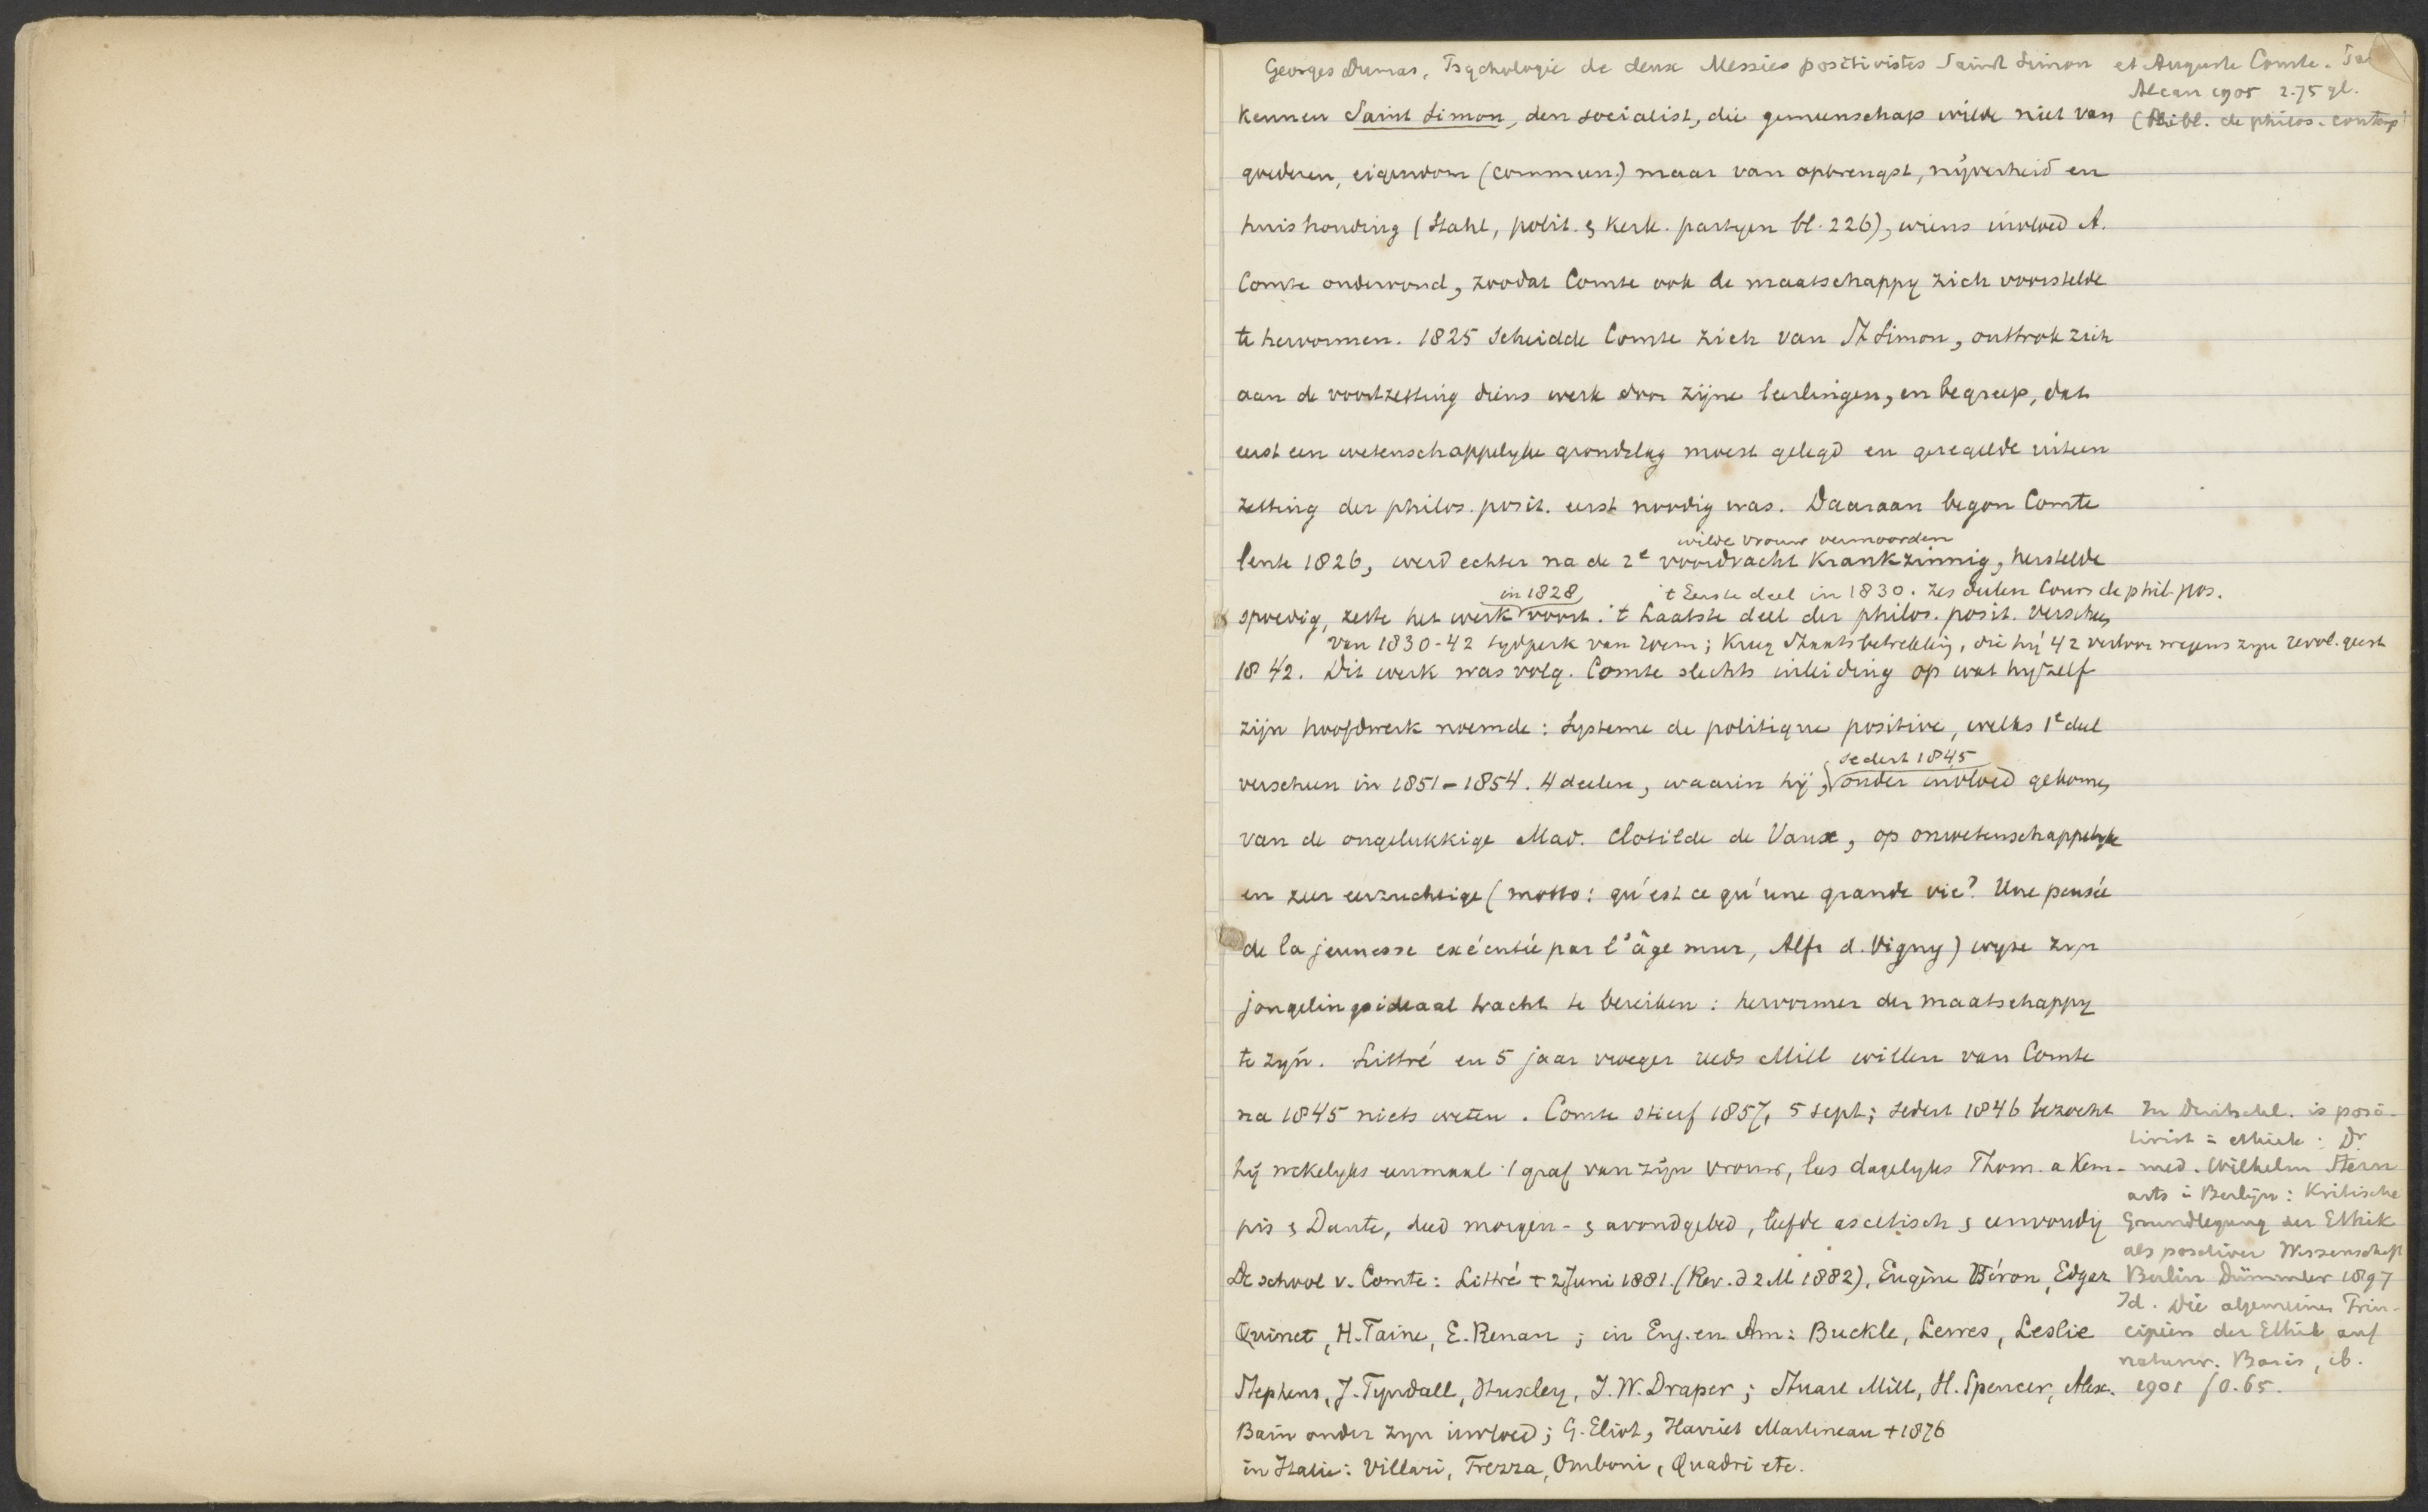 Georges Dumas, Psychologie de deux Messies positivistes Saint Simon et Auguste Comte.
Alcan 1905 2.75 gl.
(Bibl. de philos. contemp
kennen Saint Simon, den socialist, die gemeenschap wilde niet van
goederen, eigendom (commun.) maar van opbrengst, nijverheid en
huishouding (Stahl, polit. & kerk. partyen bl. 226), wiens invloed A.
Comte ondervond, zoodat Comte ook de maatschappy zich voorstelde
te hervormen. 1825 scheidde Comte zich van St Simon, onttrok zich
aan de voortzetting diens werk door zijne leerlingen, en begreep, dat
eerst een wetenschappelyke grondslag moest gelegd en geregelde uiteen
zetting der philos. posit. eerst noodig was. Daaraan begon Comte
wilde vrouw vermoorden
lente 1826, werd echter na de 2e voordracht krankzinnig, herstelde
in 1828 't Eerste deel in 1830. Zes deelen Cours de phil. pos.
spoedig, zette het werk voort. 't Laatste deel der philos. posit. verscheen
van 1830-42 tydperk van roem; kreeg Staatsbetrekking, die hy '42 verloor wegens zyn revol. geest
1842. Dit werk was volg. Comte slechts inleiding op wat hyzelf
zijn hoofdwerk noemde: Systeme de politique positive, welks 1e deel
sedert 1845
verscheen in 1851-1854. 4 deelen, waarin hij, onder invloed gekomen
van de ongelukkige Mad. Clotilde de Vaux, op onwetenschappelyke
en zeer eerzuchtige (motto: qu'est ce qu'une grande vie? Une pensée
de la jeunesse exécutée par l'âge mur, Alfr d. Vigny) wyze zyn
jongelingsideaal tracht te bereiken: hervormer der maatschappy
te zyn. Littré en 5 jaar vroeger reeds Mill willen van Comte
na 1845 niets weten. Comte stierf 1857, 5 sept; sedert 1846 bezocht
hij wekelyks eenmaal 't graf van zijn vrouw, las dagelyks Thom. a Kem-
pis & Dante, deed morgen- & avondgebed, leefde ascetisch & eenvoudig
De school v. Comte: Littré + 2 Juni 1881. (Rev. d 2 M 1882), Eugène Véron, Edgar
Quinet, H. Taine, E. Renan; in Eng. en Am: Buckle, Lewes, Leslie
Stephens, J. Tyndall, Huxley, J.W. Draper; Stuart Mill, H. Spencer, Alex.
Bain onder zyn invloed; G. Eliot, Harriet Martineau +1876
in Italie: Villari, Trezza, Omboni, Quadri etc.
In Duitschl. is posi-
tivist = ethiek: Dr
med. Wilhelm Stern
arts i Berlijn: Kritische
Grundlegung der Ethik
als positiver Wissenschaft
Berlin Dümmler 1897
Id. Die algemeinen Prin-
cipien der Ethik auf
naturw. Basis, ib.
1901 f 0.65.